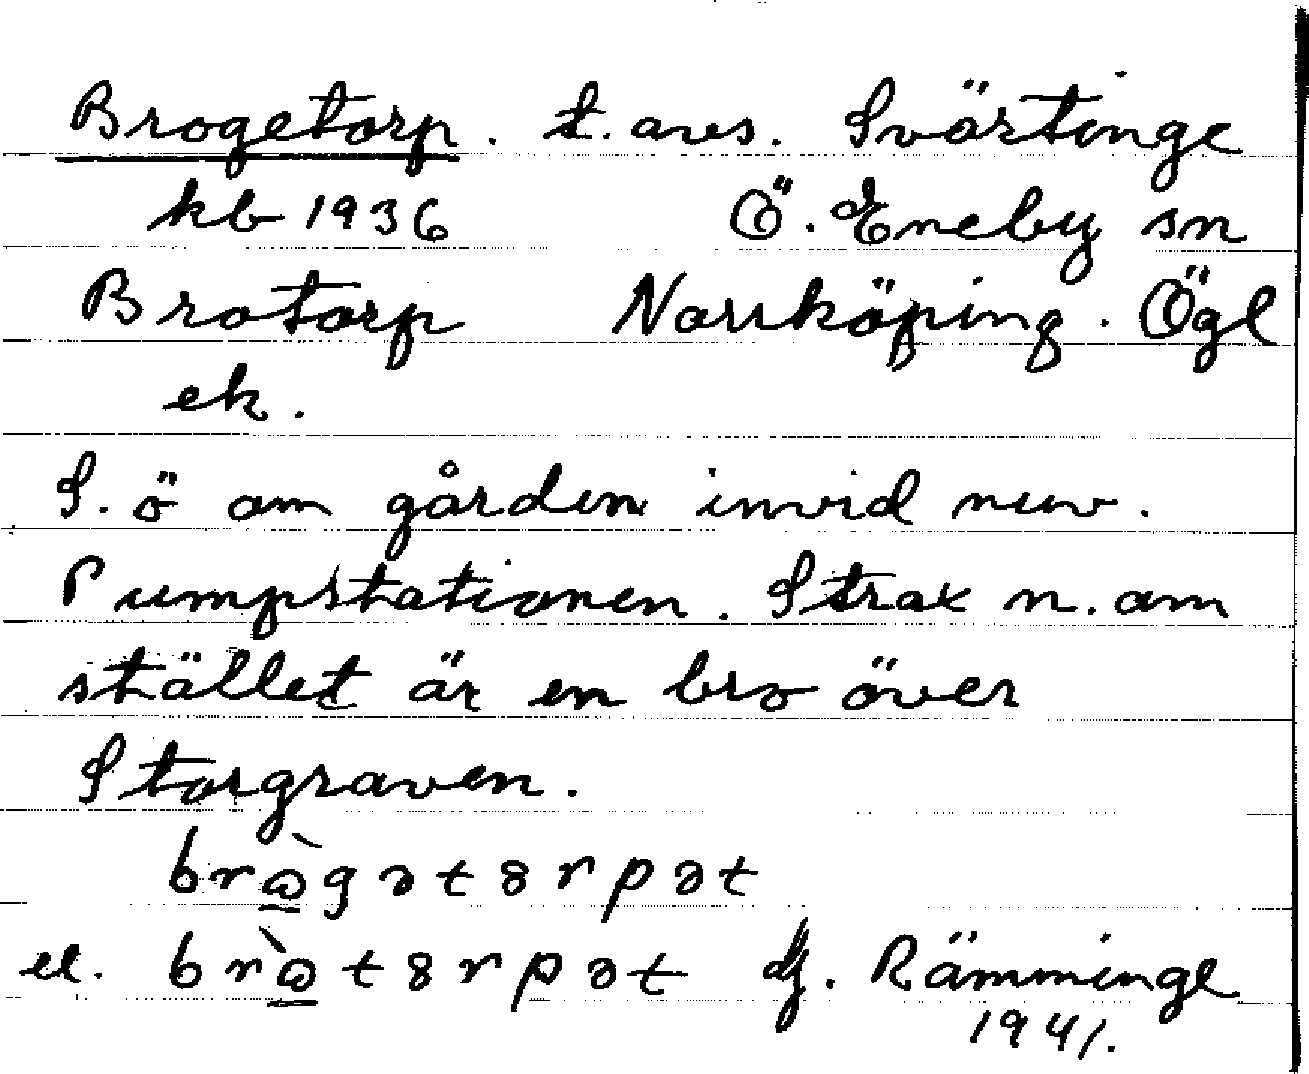 Brogetorp. t. avs. Svärtinge
kb 1936 Ö. Eneby sn
Brotorp Norrköping. Ögl
ek.
S. ö om gården invid nuv.
Pumpstationen. Strax n. om
stället är en bro över
Storgraven.
brɷ̀gət8rpət
el. brɷ̀t8rpət dj. Rämminge
1941.